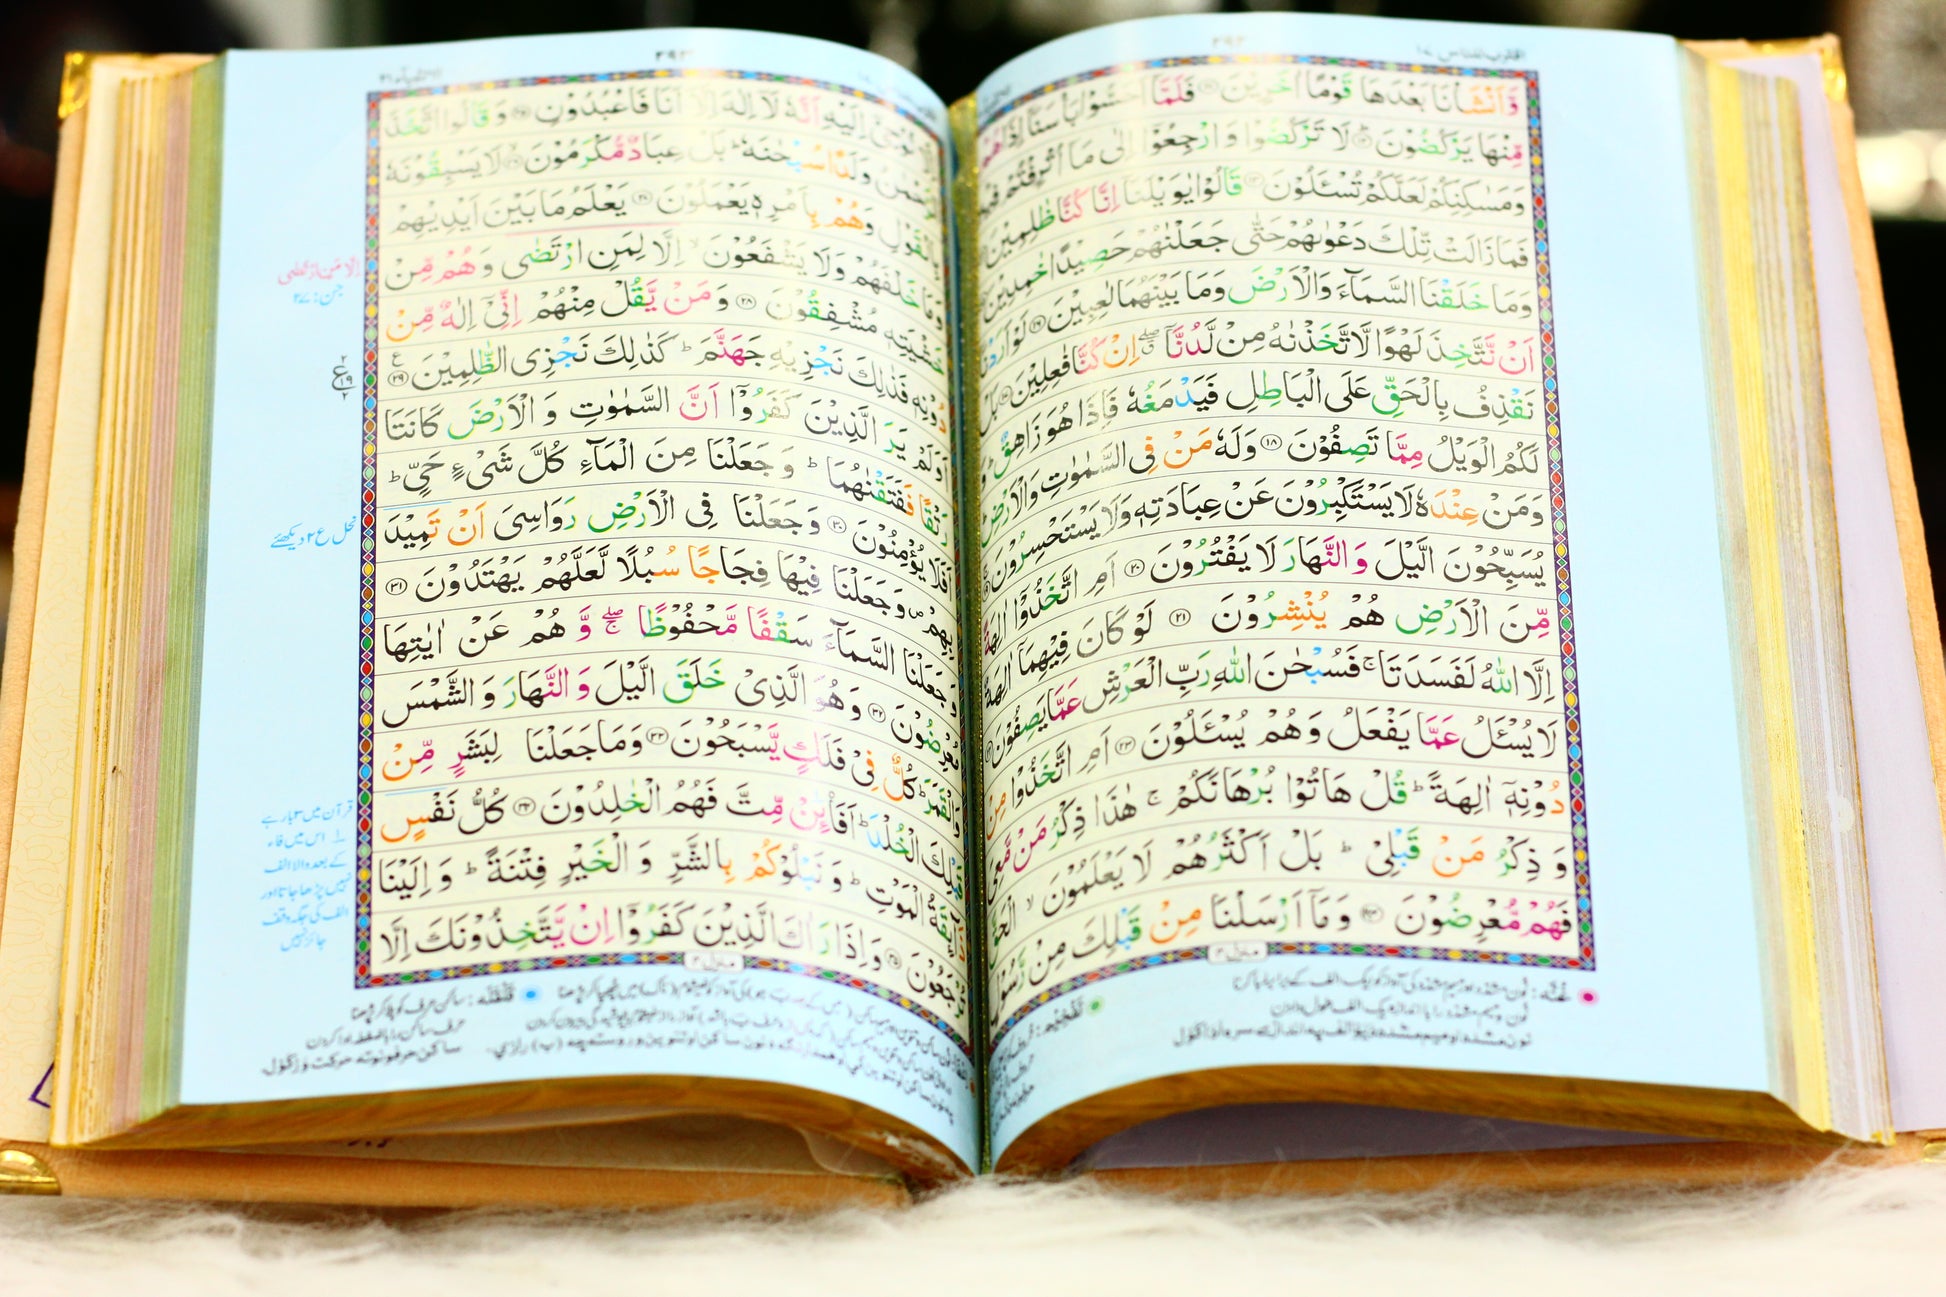 اقترب للناس ١٧
٣٩٢
وَّاَنْشَاْنَا بَعْدَهَا قَوْمًا اٰخَرِيْنَ ۝۱۱ فَلَمَّاۤ اَحَسُّوْا بَاْسَنَاۤ اِذَا هُمْ
مِّنْهَا يَرْكُضُوْنَ ۝۱۲ لَا تَرْكُضُوْا وَ ارْجِعُوْۤا اِلٰى مَاۤ اُتْرِفْتُمْ فِيْهِ
وَمَسٰكِنِكُمْ لَعَلَّكُمْ تُسْـَٔلُوْنَ ۝۱۳ قَالُوْا يٰوَيْلَنَاۤ اِنَّا كُنَّا ظٰلِمِيْنَ
فَمَا زَالَتْ تِّلْكَ دَعْوٰىهُمْ حَتّٰى جَعَلْنٰهُمْ حَصِيْدًا خٰمِدِيْنَ
وَمَا خَلَقْنَا السَّمَآءَ وَالْاَرْضَ وَمَا بَيْنَهُمَا لٰعِبِيْنَ ۝۱۶ لَوْ اَرَدْنَاۤ
اَنْ نَّتَّخِذَ لَهْوًا لَّاتَّخَذْنٰهُ مِنْ لَّدُنَّاۤ ۖ ق اِنْ كُنَّا فٰعِلِيْنَ ۝۱۷ بَلْ
نَقْذِفُ بِالْحَقِّ عَلَى الْبَاطِلِ فَيَدْمَغُهٗ فَاِذَا هُوَ زَاهِقٌ ؕ وَ
لَكُمُ الْوَيْلُ مِمَّا تَصِفُوْنَ ۝۱۸ وَلَهٗ مَنْ فِى السَّمٰوٰتِ وَالْاَرْضِ
وَمَنْ عِنْدَهٗ لَا يَسْتَكْبِرُوْنَ عَنْ عِبَادَتِهٖ وَلَا يَسْتَحْسِرُوْنَ
يُسَبِّحُوْنَ الَّيْلَ وَ النَّهَارَ لَا يَفْتُرُوْنَ ۝۲۰ اَمِ اتَّخَذُوْۤا اٰلِهَةً
مِّنَ الْاَرْضِ هُمْ يُنْشِرُوْنَ ۝۲۱ لَوْ كَانَ فِيْهِمَاۤ اٰلِهَةٌ
اِلَّا اللّٰهُ لَفَسَدَتَا ۚ فَسُبْحٰنَ اللّٰهِ رَبِّ الْعَرْشِ عَمَّا يَصِفُوْنَ
لَا يُسْـَٔلُ عَمَّا يَفْعَلُ وَهُمْ يُسْـَٔلُوْنَ ۝۲۳ اَمِ اتَّخَذُوْا مِنْ
دُوْنِهٖۤ اٰلِهَةً ؕ قُلْ هَاتُوْا بُرْهَانَكُمْ ۚ هٰذَا ذِكْرُ مَنْ مَّعِىَ
وَ ذِكْرُ مَنْ قَبْلِىْ ؕ بَلْ اَكْثَرُهُمْ لَا يَعْلَمُوْنَ ۙ الْحَقَّ
فَهُمْ مُّعْرِضُوْنَ ۝۲۴ وَ مَاۤ اَرْسَلْنَا مِنْ قَبْلِكَ مِنْ رَّسُوْلٍ
منزل ٤
٣٩٣
الانبيآء ٢١
اِلَّا نُوْحِىْۤ اِلَيْهِ اَنَّهٗ لَاۤ اِلٰهَ اِلَّاۤ اَنَا فَاعْبُدُوْنِ ۝۲۵ وَ قَالُوا اتَّخَذَ
الرَّحْمٰنُ وَلَدًا سُبْحٰنَهٗ ؕ بَلْ عِبَادٌ مُّكْرَمُوْنَ ۝۲۶ لَا يَسْبِقُوْنَهٗ
بِالْقَوْلِ وَهُمْ بِاَمْرِهٖ يَعْمَلُوْنَ ۝۲۷ يَعْلَمُ مَا بَيْنَ اَيْدِيْهِمْ
وَمَا خَلْفَهُمْ وَلَا يَشْفَعُوْنَ ۙ اِلَّا لِمَنِ ارْتَضٰى وَ هُمْ مِّنْ
خَشْيَتِهٖ مُشْفِقُوْنَ ۝۲۸ وَ مَنْ يَّقُلْ مِنْهُمْ اِنِّىْۤ اِلٰهٌ مِّنْ
دُوْنِهٖ فَذٰلِكَ نَجْزِيْهِ جَهَنَّمَ ؕ كَذٰلِكَ نَجْزِى الظّٰلِمِيْنَ ۝۲۹ ع
اَوَلَمْ يَرَ الَّذِيْنَ كَفَرُوْۤا اَنَّ السَّمٰوٰتِ وَ الْاَرْضَ كَانَتَا
رَتْقًا فَفَتَقْنٰهُمَا ؕ وَ جَعَلْنَا مِنَ الْمَآءِ كُلَّ شَىْءٍ حَىٍّ ؕ
اَفَلَا يُؤْمِنُوْنَ ۝۳۰ وَ جَعَلْنَا فِى الْاَرْضِ رَوَاسِىَ اَنْ تَمِيْدَ
بِهِمْ ص وَ جَعَلْنَا فِيْهَا فِجَاجًا سُبُلًا لَّعَلَّهُمْ يَهْتَدُوْنَ ۝۳۱
وَ جَعَلْنَا السَّمَآءَ سَقْفًا مَّحْفُوْظًا ۖۚ وَّ هُمْ عَنْ اٰيٰتِهَا
مُعْرِضُوْنَ ۝۳۲ وَ هُوَ الَّذِىْ خَلَقَ الَّيْلَ وَ النَّهَارَ وَ الشَّمْسَ
وَالْقَمَرَ ؕ كُلٌّ فِىْ فَلَكٍ يَّسْبَحُوْنَ ۝۳۳ وَ مَا جَعَلْنَا لِبَشَرٍ مِّنْ
قَبْلِكَ الْخُلْدَ ؕ اَفَا۟ئِنْ مِّتَّ فَهُمُ الْخٰلِدُوْنَ ۝۳۴ كُلُّ نَفْسٍ
ذَآئِقَةُ الْمَوْتِ ؕ وَ نَبْلُوْكُمْ بِالشَّرِّ وَ الْخَيْرِ فِتْنَةً ؕ وَ اِلَيْنَا
تُرْجَعُوْنَ ۝۳۵ وَ اِذَا رَاٰكَ الَّذِيْنَ كَفَرُوْۤا اِنْ يَّتَّخِذُوْنَكَ اِلَّا
منزل ٤
اِلَّا مَنِ ارْتَضٰى
جن: ٢٧
٢
ع
١٩
٢
نحل ع ٢ دیکھئے
قرآن میں ٣ بار ہے
اس میں فاء
کے بعد والا الف
نہیں پڑھا جاتا اور
الف کی جگہ وقف
جائز نہیں